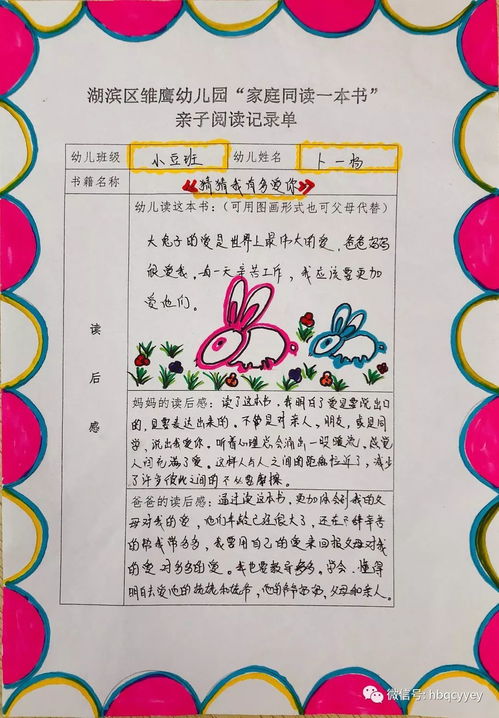 湖滨区雏鹰幼儿园“家庭同读一本书”
亲子阅读记录单
幼儿班级 小豆班 幼儿姓名 卜一杨
书籍名称 《猜猜我有多爱你》
幼儿读这本书：（可用图画形式也可父母代替）
大兔子的爱是世界上最伟大的爱，爸爸妈妈
很爱我，每一天辛苦工作，我应该要更加
爱他们。
读
后
感
妈妈的读后感：读了这本书，我明白了爱是要说出口
的，且要表达出来的。不管是对亲人、朋友，或是同
学，说出我爱你。听着心里总会涌出一股暖流，感觉
人间充满了爱。这样人与人之间的距离拉近了，减少
了许多彼此之间的不必要摩擦。
爸爸的读后感：通过读这本书，更加体会到我的父
母对我的爱，他们年龄已经很大了，还在不辞辛苦
的帮我带多多，我要用自己的爱来回报父母对我
的爱 对多多的爱。我也要教导多多。学会、懂得
明白去爱他的 他的爷爷奶奶，父母和亲人。
微信号：hbqcyyey